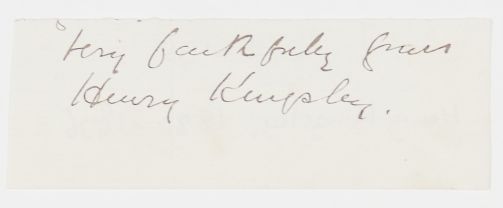 Very faithfully yours
Henry Kingsley.